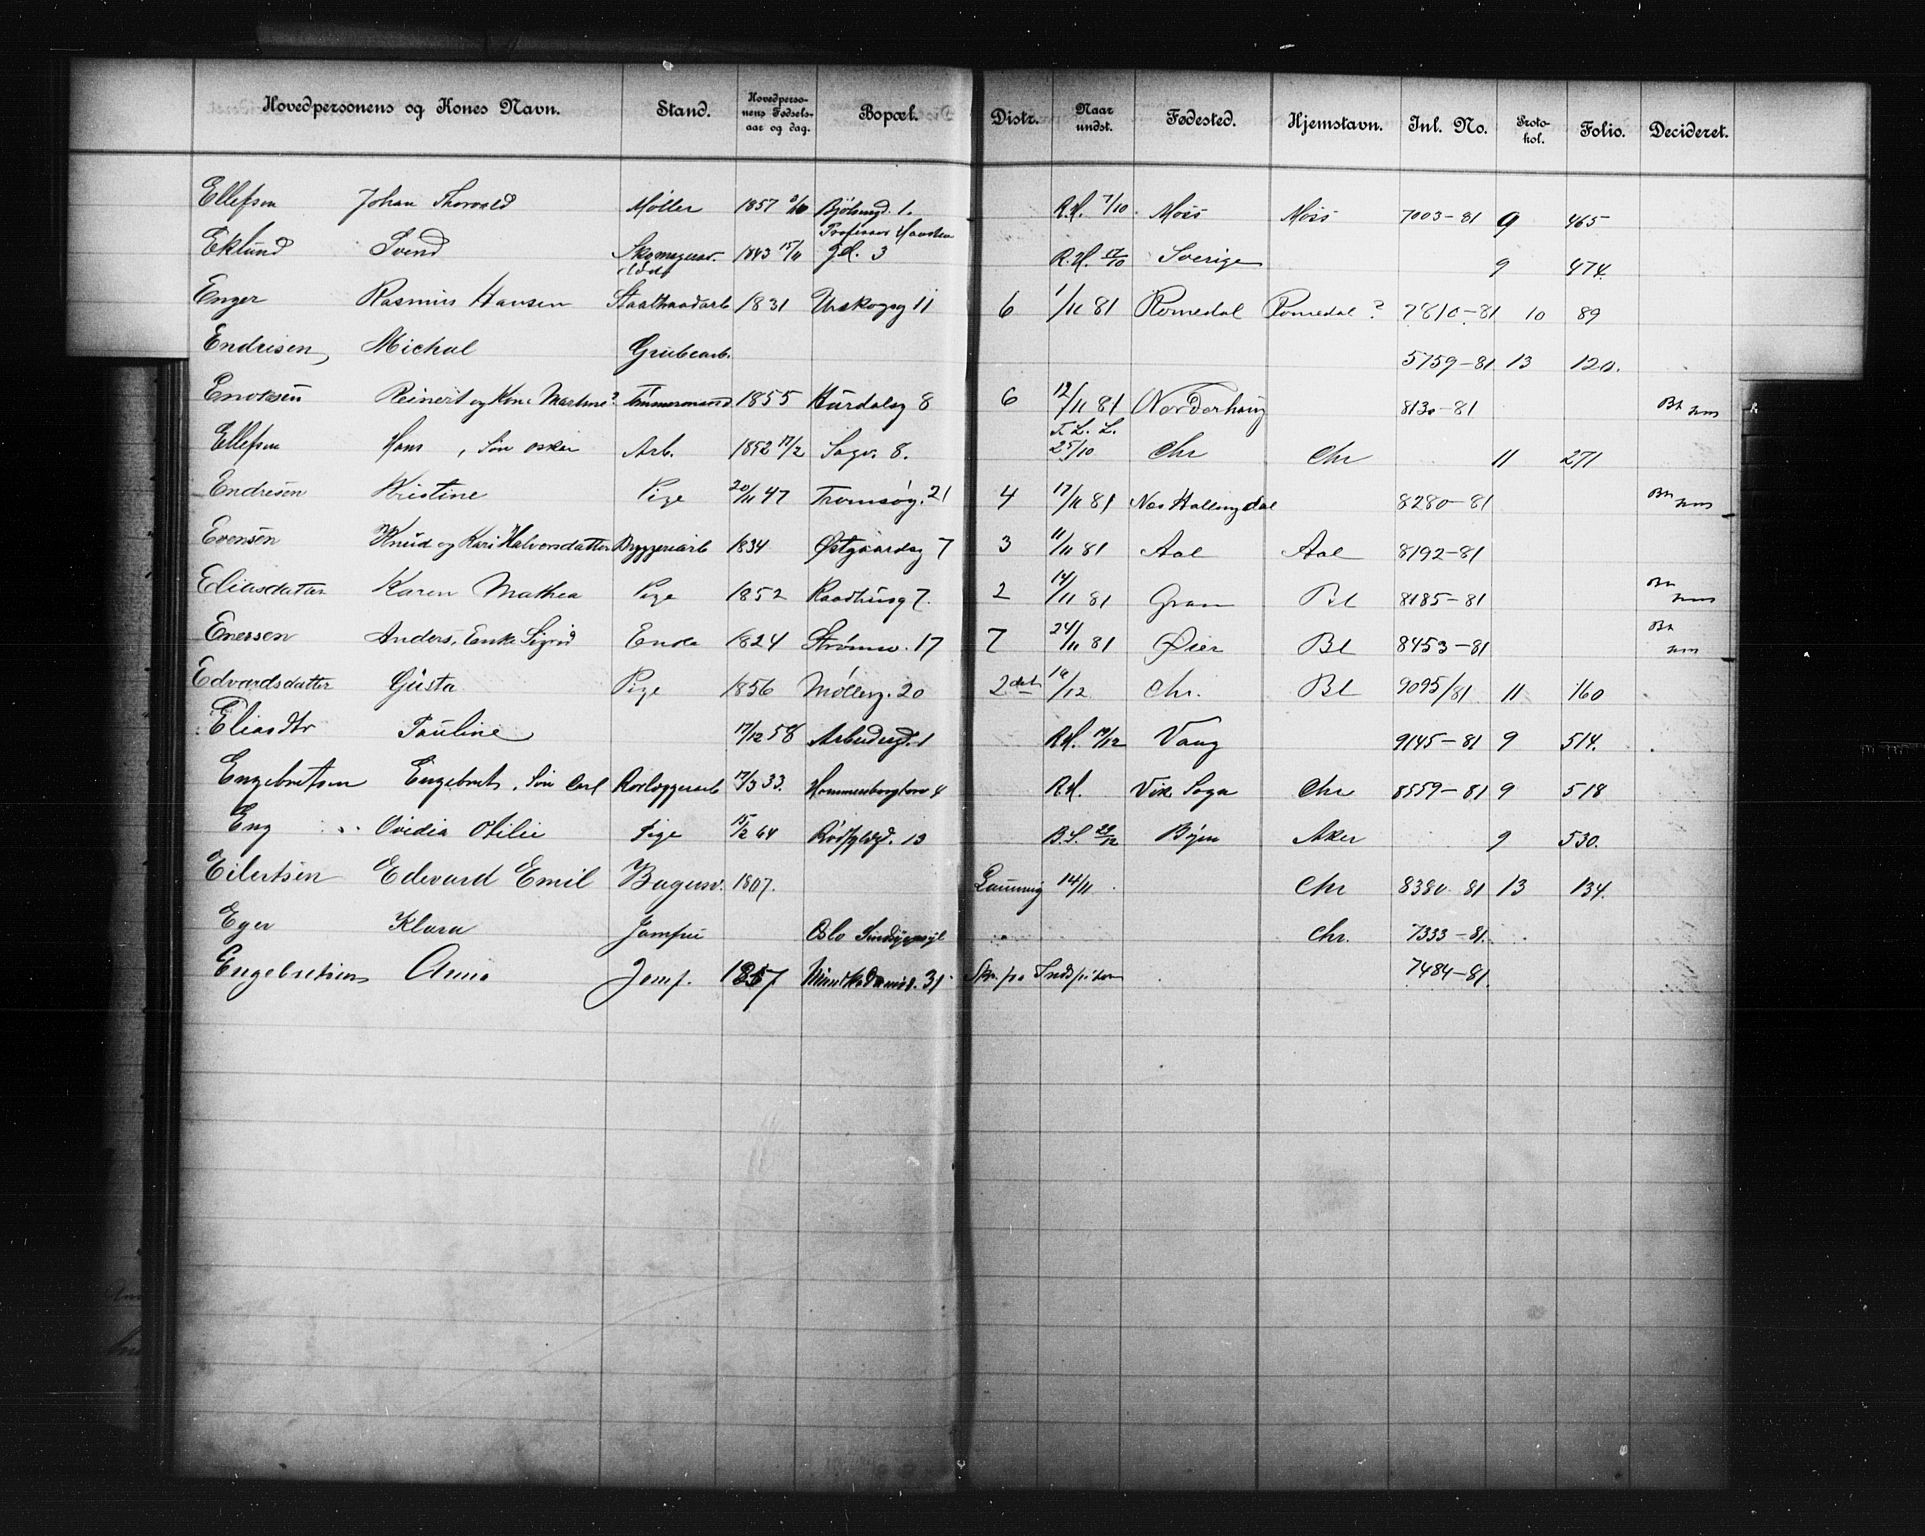 Hovedpersonens og Kones Navn. Stand. Hovedperso-nens Fødsels-aar og dag. Bopæl. Distr. Naar undst. Fødested. Hjemstavn. Inl. No. Proto-kol. Folio. Decideret.
Ellefsen Johan Thorvald Møller 1857 Bjølseng. 1. R.H. 7/10 Moss Moss 7003-81 9 465
Eklund Svend 1843 15/11 Professor gd. 3 R.H. Sverige 9 474
Enger Rasmus Hansen 1831 Urskogsg 11 6 1/11 81 Romedal Romedal? 7810-81 10 89
Endresen, Michal Grubearb. 5759-81 13 120.
Reinert og Kone Martine? Tømmermand 1855 Hurdalsg 8 6 12/11 81 Norderhoug 8130-81
Ellefsen Hans, Søn Oskar Arb. 1852 17/2 Sagv. 8. 25/10 Chr Chr 11 271
Endresen Kristine Pige 20/11 47 Tromsøg. 21 4 17/11 81 Nes Hallingdal 8280-81
Evensen Knud og Kari Halvorsdatter Bryggeriarb 1834 Østgaardsg 7 3 11/11 81 Aal Aal 8192-81
Eliasdatter Karen Mathea Pige 1852 Raadhusg 7. 2 14/11 81 Gran Bl 8185-81
Enersen Anders, Enke Sigrid Enke 1824 Strømsv. 17 7 24/11 81 Øier Bl 8453-81
Edvardsdatter Gusta Pige 1856 Møllerg. 20 2det 16/12 Chr. Bl 9095/81 11 160
Eliasdtr Pauline 17/12 58 Arbeidergd. 1 R.H. 19/12 Vang 9145-81 9 514.
Engebretsen Engebret, Søn Carl Rørlæggerarb 17/3 33. Hammersborgtorv 4 R.H. Vik Sogn Chr 8559-81 9 518
Eng Ovidia Otilie Pige 15/2 64 13 B.L. 29/12 Aker 9 530.
Eilertsen Edevard Emil Bagersv. 1807. Laurvig 14/11 Chr 8380 81 13 134.
Eger Klara Jomfru Oslo Chr. 7333-81.
Engebretsen Anna Jomf. 1857 31 7484-81.